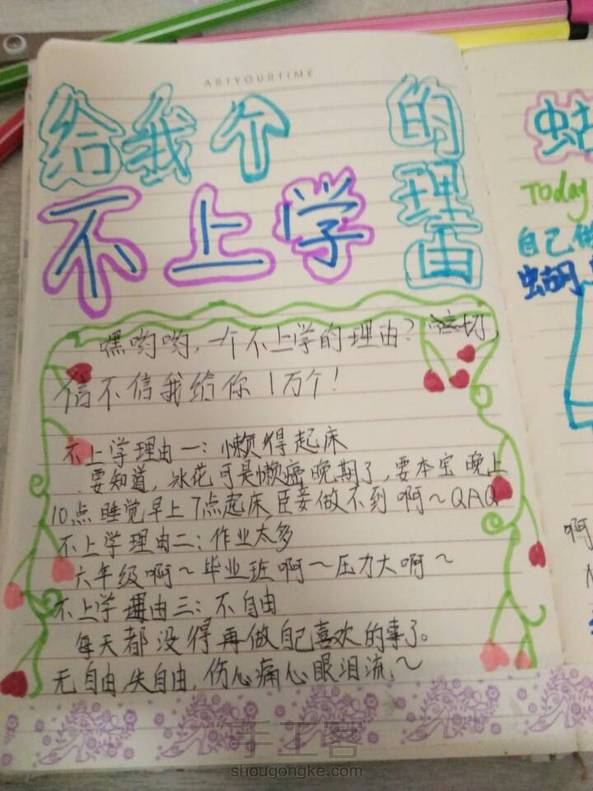 ARTYOURTIME
给我个
不上学
的理由
嘿哟哟，一个不上学的理由？切，
信不信我给你1万个！
不上学理由一：懒得起床
要知道，冰花可是懒癌晚期了，要本宝晚上
10点睡觉早上7点起床臣妾做不到啊～QAQ
不上学理由二：作业太多
六年级啊～毕业班啊～压力大啊～
不上学理由三：不自由
每天都没得再做自己喜欢的事了。
无自由，失自由，伤心痛心眼泪流，～
Today
自己
蝴
啊
手工客
shougongke.com